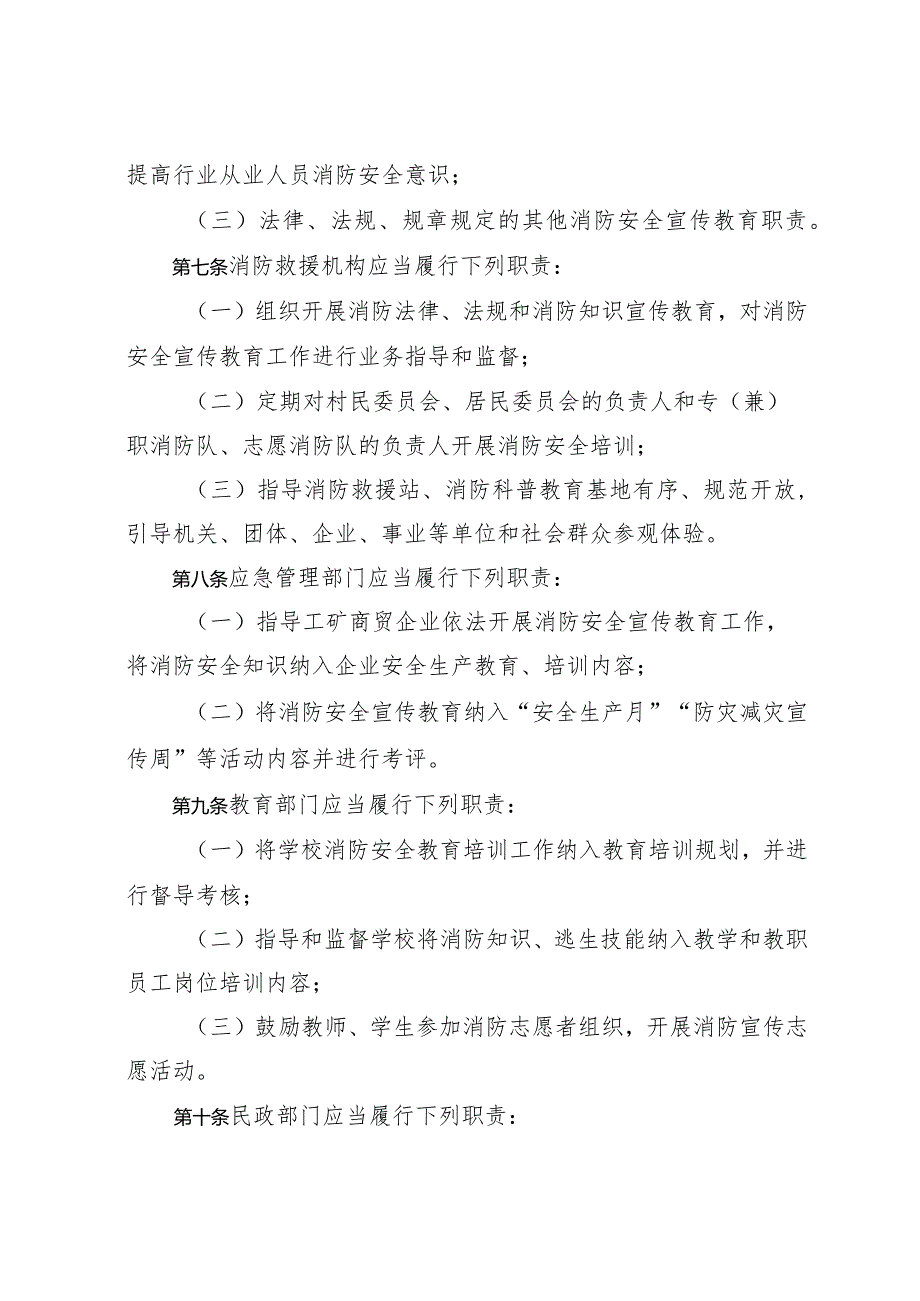 提高行业从业人员消防安全意识；
（三）法律、法规、规章规定的其他消防安全宣传教育职责。
第七条消防救援机构应当履行下列职责：
（一）组织开展消防法律、法规和消防知识宣传教育，对消防
安全宣传教育工作进行业务指导和监督；
（二）定期对村民委员会、居民委员会的负责人和专（兼）
职消防队、志愿消防队的负责人开展消防安全培训；
（三）指导消防救援站、消防科普教育基地有序、规范开放，
引导机关、团体、企业、事业等单位和社会群众参观体验。
第八条应急管理部门应当履行下列职责：
（一）指导工矿商贸企业依法开展消防安全宣传教育工作，
将消防安全知识纳入企业安全生产教育、培训内容；
（二）将消防安全宣传教育纳入“安全生产月”“防灾减灾宣
传周”等活动内容并进行考评。
第九条教育部门应当履行下列职责：
（一）将学校消防安全教育培训工作纳入教育培训规划，并进
行督导考核；
（二）指导和监督学校将消防知识、逃生技能纳入教学和教职
员工岗位培训内容；
（三）鼓励教师、学生参加消防志愿者组织，开展消防宣传志
愿活动。
第十条民政部门应当履行下列职责：